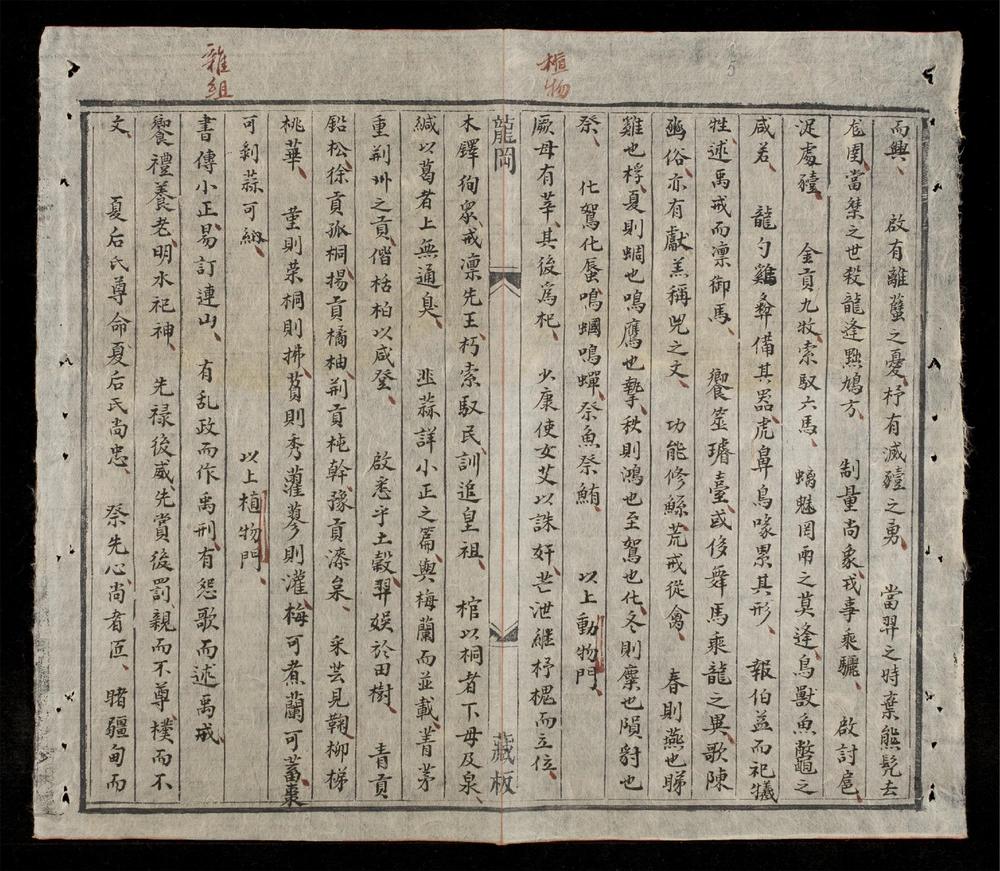 植物
而興、啟有離蠥之憂、杼有滅豷之勇　當羿之時棄熊髡去
尨圉、當桀之世殺龍逄黜鳩方、　制量尚象、戎事乘驪、　啟討扈、
浞處豷、　金貢九牧、索馭六馬、　螭魅罔兩之莫逢、鳥獸魚鼈之
咸若、　龍勺雞彝備其器、虎鼻鳥喙累其形、　報伯益而祀犧
牲、述禹戒而凜御馬、　饗筮璿臺、或侈舞馬乘龍之異、歌陳
豳俗、亦有獻羔稱兕之文、　功能修鯀、荒戒從禽、　春則燕也睇
雞也桴、夏則蜩也鳴鷹也摯、秋則鴻也至鴽也化、冬則麋也隕豺也
祭、　化鴽化蜃鳴蟈鳴蟬、祭魚祭鮪、　以上動物門、
厥母有莘、其後爲杞、　少康使女艾以誅奸、芒泄継杼槐而立位、
龍岡　藏板
雜組
木鐸徇衆、戒凛先王、朽索馭民、訓追皇祖、　棺以桐者下毋及泉、
緘以葛者上無通臭、　韭蒜詳小正之篇、與梅蘭而並載、菁茅
重荆州之貢、偕栝柏以咸登、　啟悉乎土穀、羿娱於田樹、　青貢
鉛松、徐貢孤桐、揚貢橘柚、荆貢杶幹、豫貢漆枲、　采芸見鞠、柳稊
桃華、　堇則荣、桐則拂、萯則秀、雚蓼則灌、梅可煮、蘭可蓄、棗
可剥、蒜可納、　以上植物門、
書傳小正、易訂連山、　有乱政而作禹刑、有怨歌而述禹戒、
饗禮養老、明水祀神、　先禄後威、先賞後罰、親而不尊、樸而不
文、　夏后氏尊命、夏后氏尚忠、　祭先心、尚者匠、　睹疆甸而